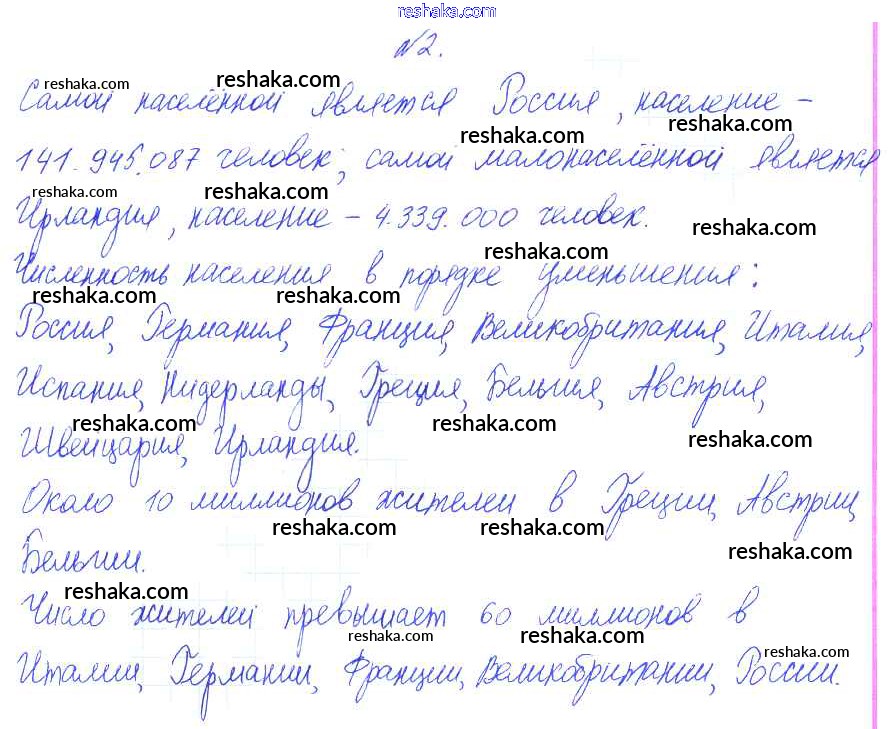 reshaka.com
№2.
reshaka.com reshaka.com
Самой населённой является Россия, население –
reshaka.com reshaka.com
141.945.087 человек; самой малонаселённой является
reshaka.com reshaka.com
Ирландия, население – 4.339.000 человек.
reshaka.com reshaka.com
Численность населения в порядке уменьшения:
reshaka.com reshaka.com
Россия, Германия, Франция, Великобритания, Италия,
Испания, Нидерланды, Греция, Бельгия, Австрия,
reshaka.com reshaka.com reshaka.com
Швейцария, Ирландия.
Около 10 миллионов жителей в Греции, Австрии,
reshaka.com reshaka.com reshaka.com
Бельгии.
reshaka.com
Число жителей превышает 60 миллионов в
reshaka.com reshaka.com reshaka.com
Италии, Германии, Франции, Великобритании, России.